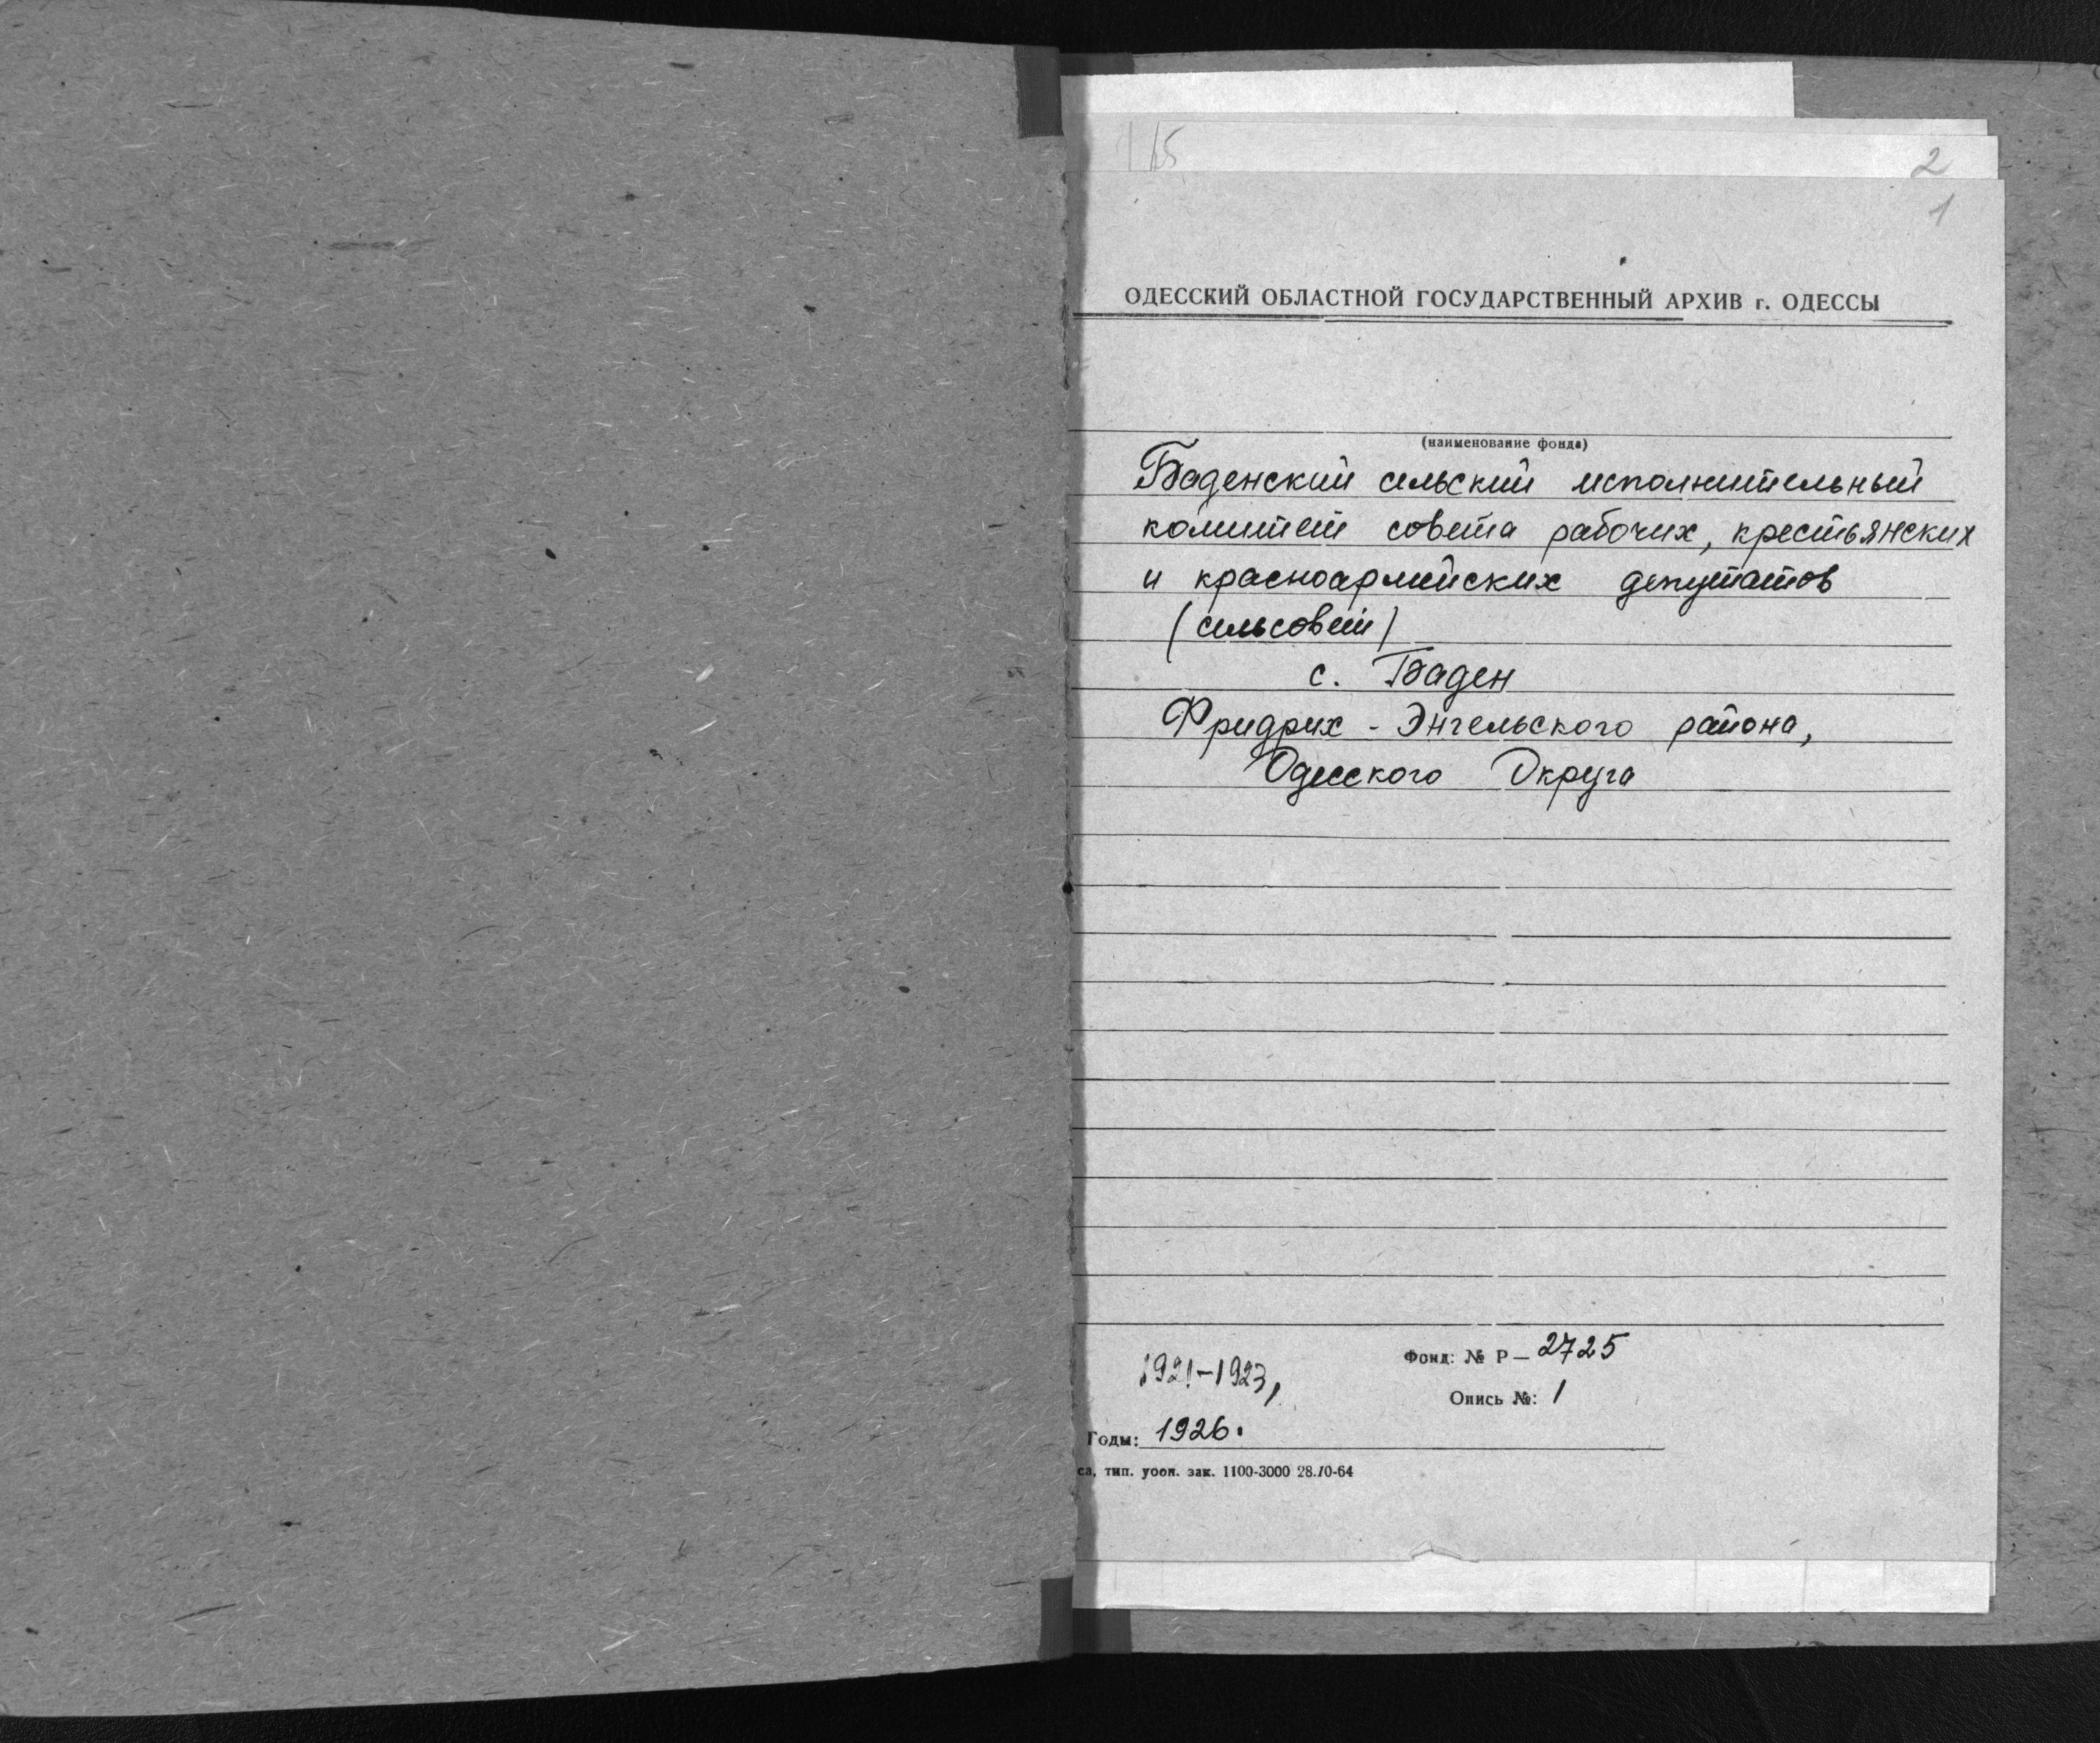 15
2
1
ОДЕССКИЙ ОБЛАСТНОЙ ГОСУДАРСТВЕННЫЙ АРХИВ г. ОДЕССЫ
(наименование фонда)
Баденский сельский исполнительный
комитет совета рабочих, крестьянских
и красноармейских депутатов
(сельсовет)
с. Баден
Фридрих - Энгельского района,
Одесского Округа
Фонд: № Р — 2725
1921-1923,
Опись №: 1
Годы: 1926.
са, тип. уооп. зак. 1100-3000 28.10-64